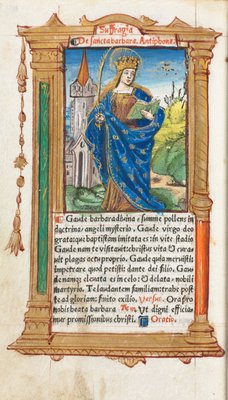 Suffragia
De sancta barbara. Antiphone.
Gaude barbara diuina / summe pollens in
doctrina / angeli mysterio. Gaude virgo deo
grata: que baptistam imitata es: in vite stadio
Gaude nam te visitauit: christus ⁊ curauit
plagas actu proprio. Gaude quia meruisti:
impetrare quod petisti: dante dei filio. Gau
de nanque eleuata es in celo: ⁊ delata: nobili
martyrio. Te laudantem familiam: trahe post
te ad gloriam: finito exilio. Versus. Ora pro
nobis beata barbara ut digni efficia
mur promissionibus christi. Oratio.